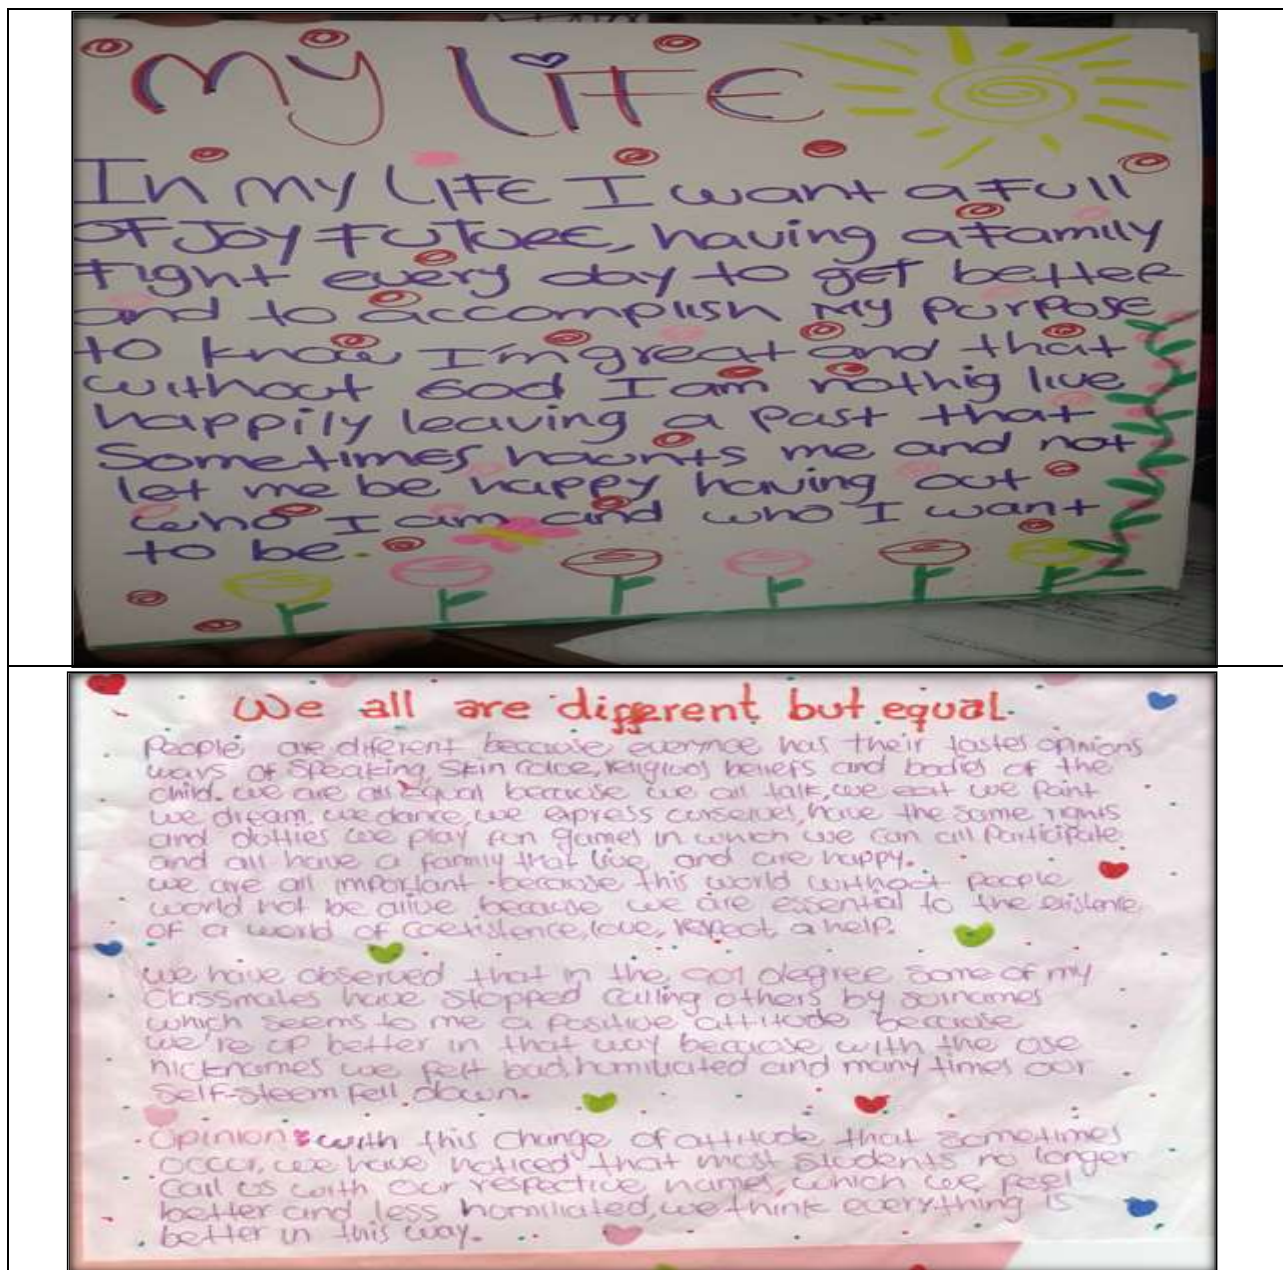 My LiFE
In my LiFE I want a Full
OF Joy Future, having a Family
Fight every day to get better
and to accomplish My Purpose
to know I'm great and that
without God I am nothig live
happily leaving a Past that
Sometimes haunts me and not
let me be happy having out
who I am and who I want
to be.
We all are different but equal.
People are diferent because everynoe has their tastes opinions
ways of speaking, skin coloe, religious beliefs and bodies of the
child. we are all Equal because we all talk, we eat we paint
we dream, we dance, we express ourselves, have the same rights
and dotties we play fun games in which we can all Participate
and all have a family that live and are happy.
we are all important because this world without people
world not be alive because we are essential to the existence
of a world of coexistence, love, respect, a help.
we have observed that in the 901 degree some of my
classmates have stopped calling others by surnames
which seems to me a positive attitude because
we're up better in that way because with the use
nicknames we felt bad, humiliated and many times our
Self-steem fell down.
Opinion: with this change of attitude that sometimes
occur, we have noticed that most students no longer
call us with our respective names, which we feel
better and less homiliated, we think everything is
better in this way.